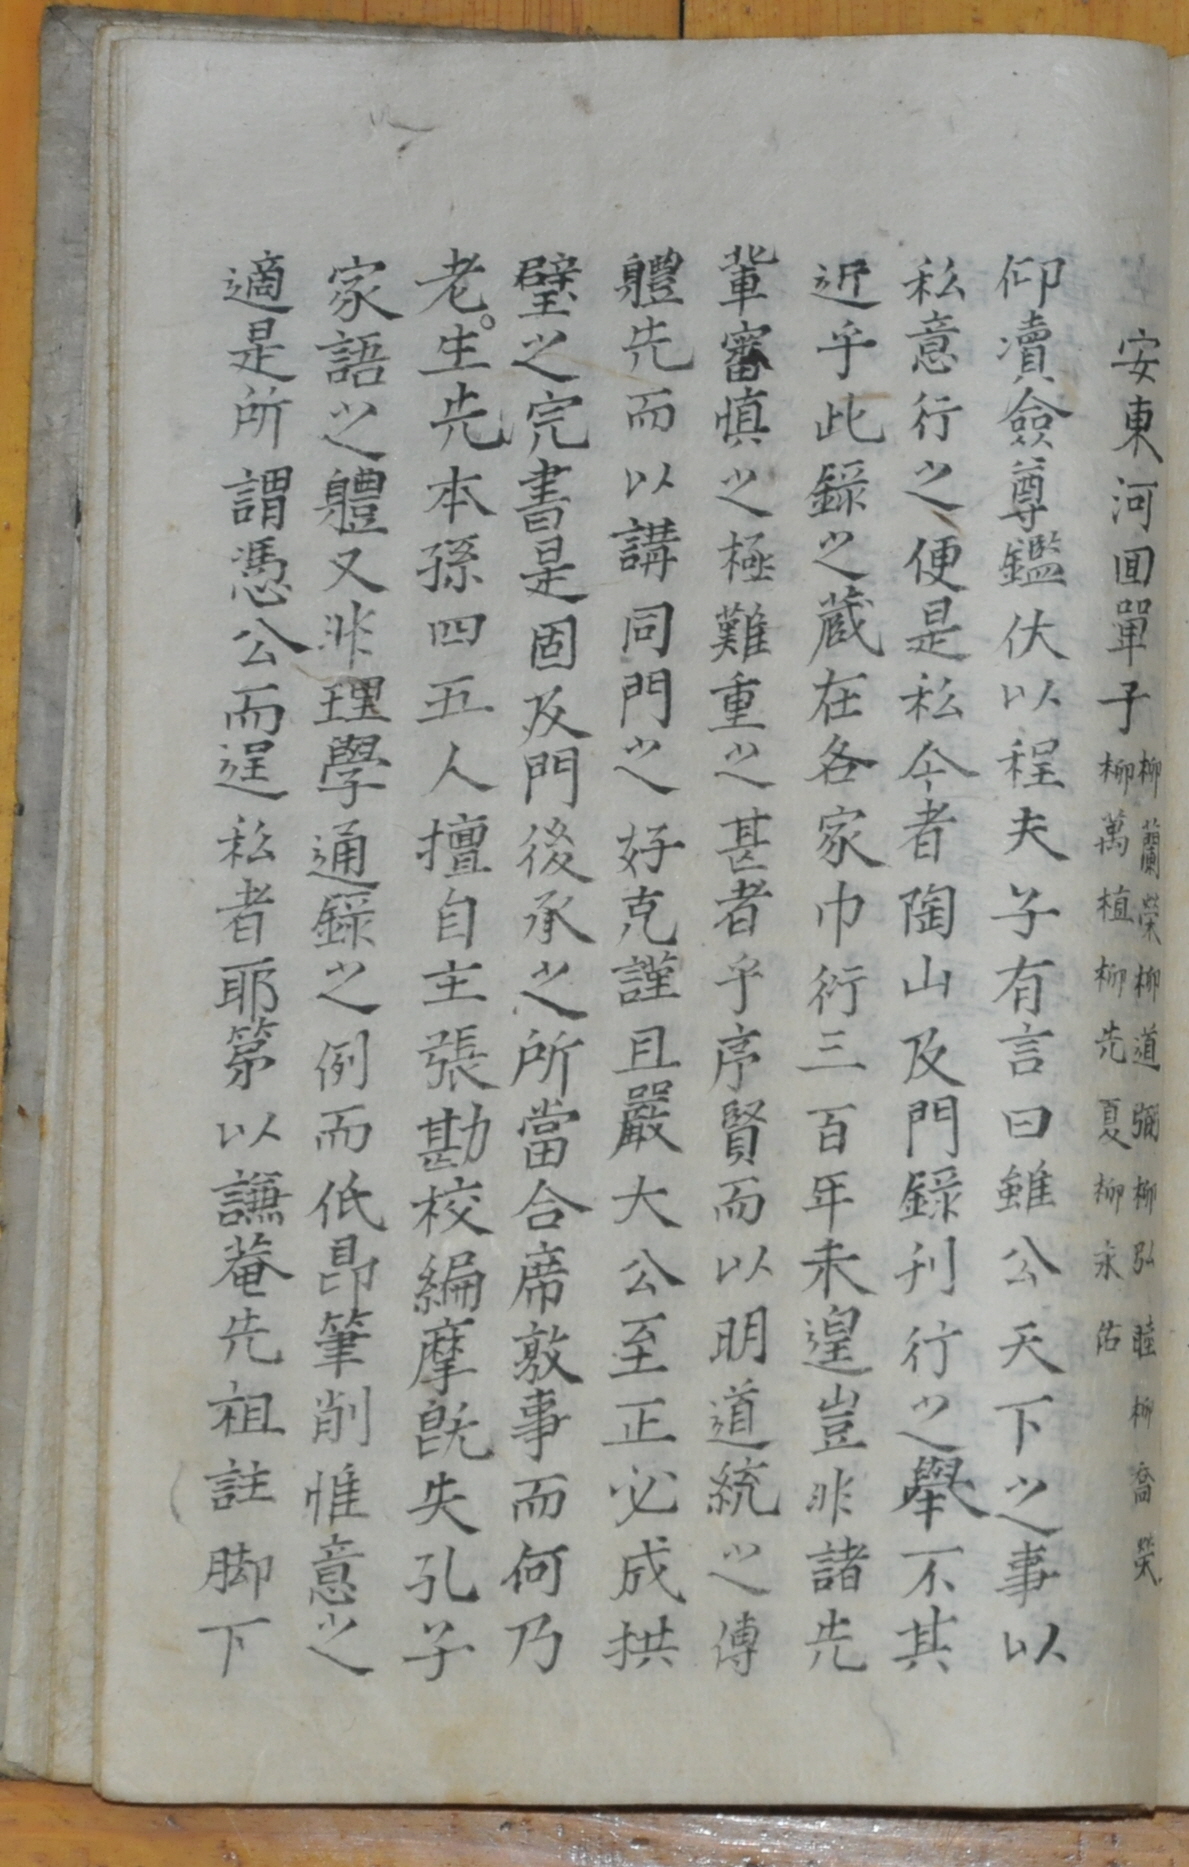 安東河回單子 柳蘭榮柳道弼柳弘睦柳喬榮
柳萬植柳先夏柳永佑
仰瀆僉尊鑑伏以程夫子有言曰雖公天下之事以
私意行之便是私今者陶山及門錄刋行之擧不其
近乎此錄之蔵在各家巾衍三百年未遑豈非諸先
軰審愼之極難重之甚者乎序賢而以明道統之傳
軆先而以講同門之好克謹且嚴大公至正必成拱
璧之完書是固及門後承之所當合席敦事而何乃
老。生先本孫四五人擅自主張勘校編摩旣失孔子
家語之軆又非理學通錄之例而低昂筆削惟意之
適是所謂憑公而逞私者耶第以謙菴先祖註脚下